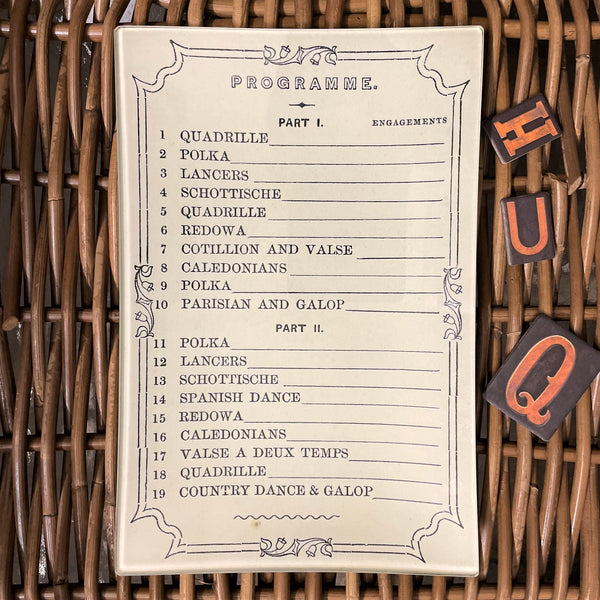 PROGRAMME.
PART I. ENGAGEMENTS
1 QUADRILLE
2 POLKA
3 LANCERS
4 SCHOTTISCHE
5 QUADRILLE
6 REDOWA
7 COTILLION AND VALSE
8 CALEDONIANS
9 POLKA
10 PARISIAN AND GALOP
PART II.
11 POLKA
12 LANCERS
13 SCHOTTISCHE
14 SPANISH DANCE
15 REDOWA
16 CALEDONIANS
17 VALSE A DEUX TEMPS
18 QUADRILLE
19 COUNTRY DANCE & GALOP
H
U
Q